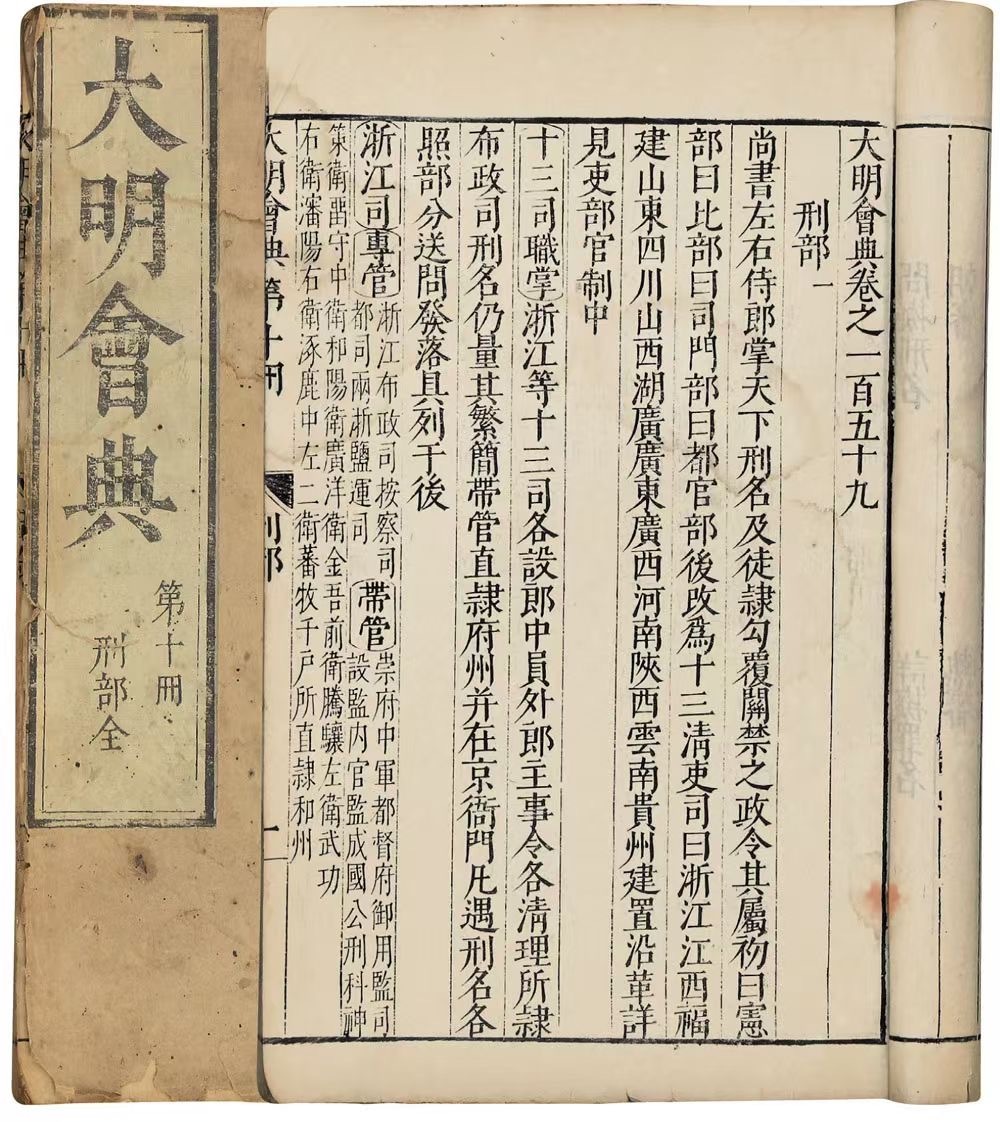 大明會典
第十冊
刑部全
大明會典卷之一百五十九
刑部一
尚書左右侍郎掌天下刑名及徒隸勾覆關禁之政令其屬初曰憲
部曰比部曰司門部曰都官部後改爲十三清吏司曰浙江江西福
建山東四川山西湖廣廣東廣西河南陝西雲南貴州建置沿革詳
見吏部官制中
十三司職掌浙江等十三司各設郎中員外郎主事令各清理所隸
布政司刑名仍量其繁簡帶管直隸府州并在京衙門凡遇刑名各
照部分送問發落具列于後
浙江司專管
浙江布政司按察司
都司兩浙鹽運司
帶管
崇府中軍都督府御用監司
設監內官監成國公刑科神
策衛畱守中衛和陽衛廣洋衛金吾前衛騰驤左衛武功
右衛瀋陽右衛涿鹿中左二衛蕃牧千戶所直隸和州
大明會典第十冊
刑部